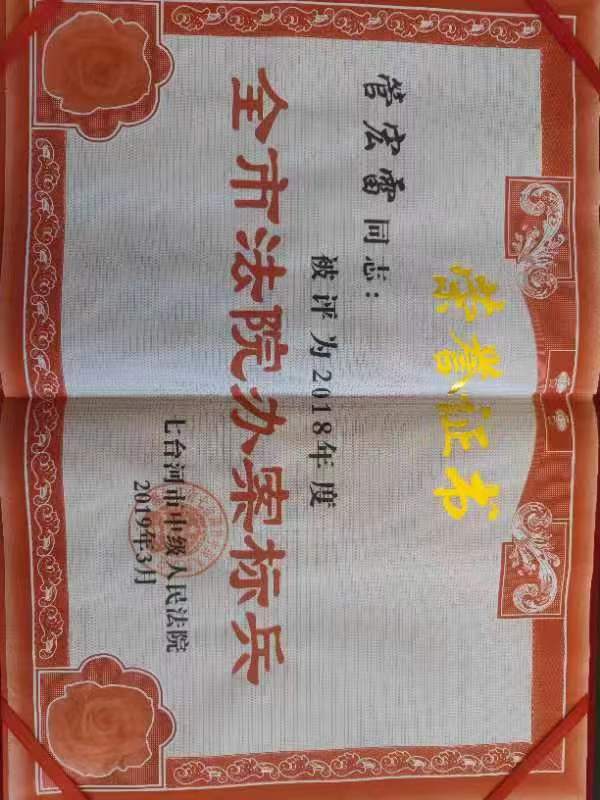 荣誉证书
管宏雷同志：
被评为2018年度
全市法院办案标兵
七台河市中级人民法院
2019年3月